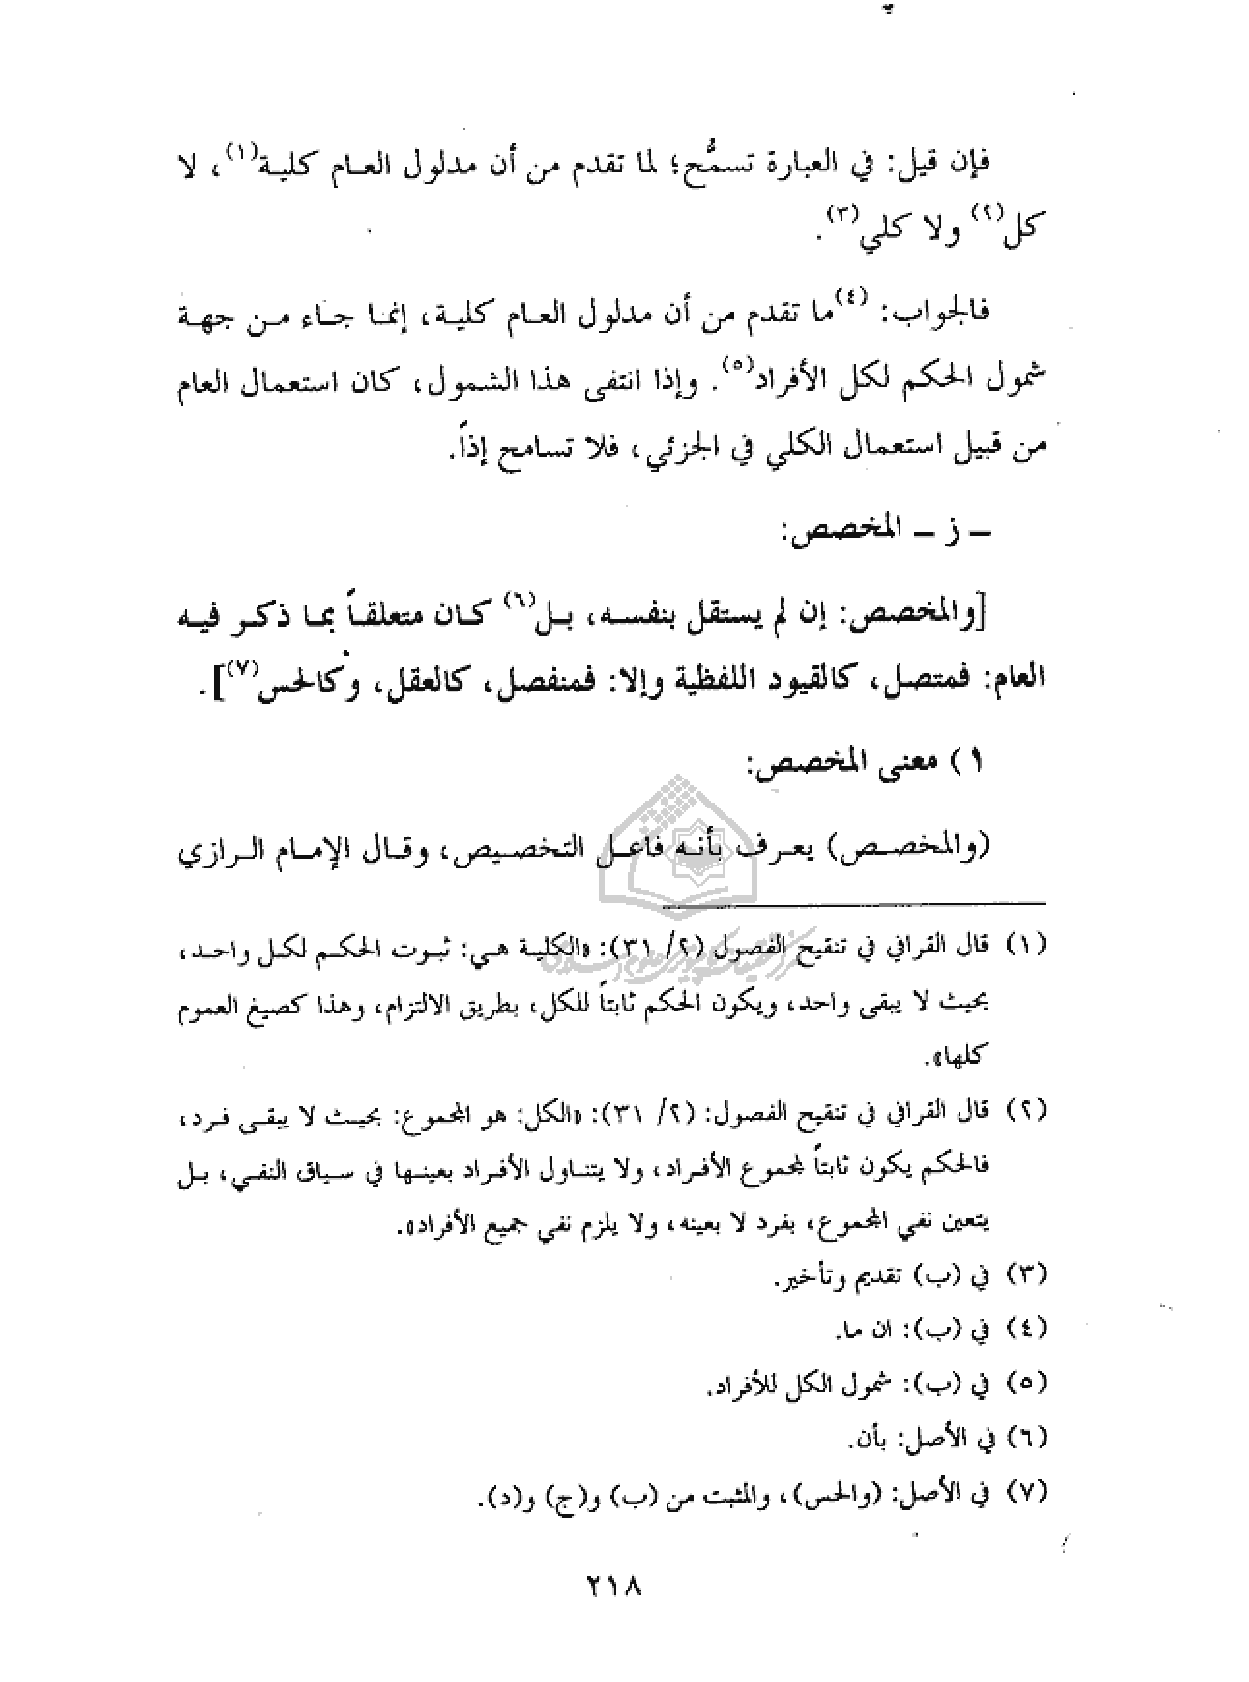 فإن قيل: في العبارة تسمُّح؛ لما تقدم من أن مدلول العـام كليـة(١)، لا
كل(٢) ولا كلي(٣).
فالجواب: (٤)ما تقدم من أن مدلول العـام كليـة، إنمـا جـاء مـن جهـة
شمول الحكم لكل الأفراد(٥). وإذا انتفى هذا الشمول، كان استعمال العام
من قبيل استعمال الكلي في الجزئي، فلا تسامح إذاً.
ـ ز ـ المخصص:
[والمخصص: إن لم يستقل بنفسـه، بـل(٦) كـان متعلقـاً بمـا ذكـر فيـه
العام: فمتصـل، كالقيود اللفظية وإلا: فمنفصل، كالعقل، وكالحس(٧)].
١) معنى المخصص:
(والمخصـص) يعـرف بأنـه فاعـل التخـصـيص، وقـال الإمـام الـرازي
(١) قال القرافي في تنقيح الفصول (٢/ ٣١): «الكليـة هـي: ثبـوت الحكـم لكـل واحـد،
بحيث لا يبقى واحد، ويكون الحكم ثابتاً للكل، بطريق الالتزام، وهذا كصيغ العموم
كلها».
(٢) قال القرافي في تنقيح الفصول: (٢/ ٣١): «الكل: هو المجموع: بحيـث لا يبقـى فـرد،
فالحكم يكون ثابتاً لمجموع الأفـراد، ولا يتنـاول الأفـراد بعينـها في سـياق النفـي، بـل
يتعين نفي المجموع، بفرد لا بعينه، ولا يلزم نفي جميع الأفراد».
(٣) في (ب) تقديم وتأخير.
(٤) في (ب): ان ما.
(٥) في (ب): شمول الكل للأفراد.
(٦) في الأصل: بأن.
(٧) في الأصل: (والحس)، والمثبت من (ب) و(ج) و(د).
٢١٨